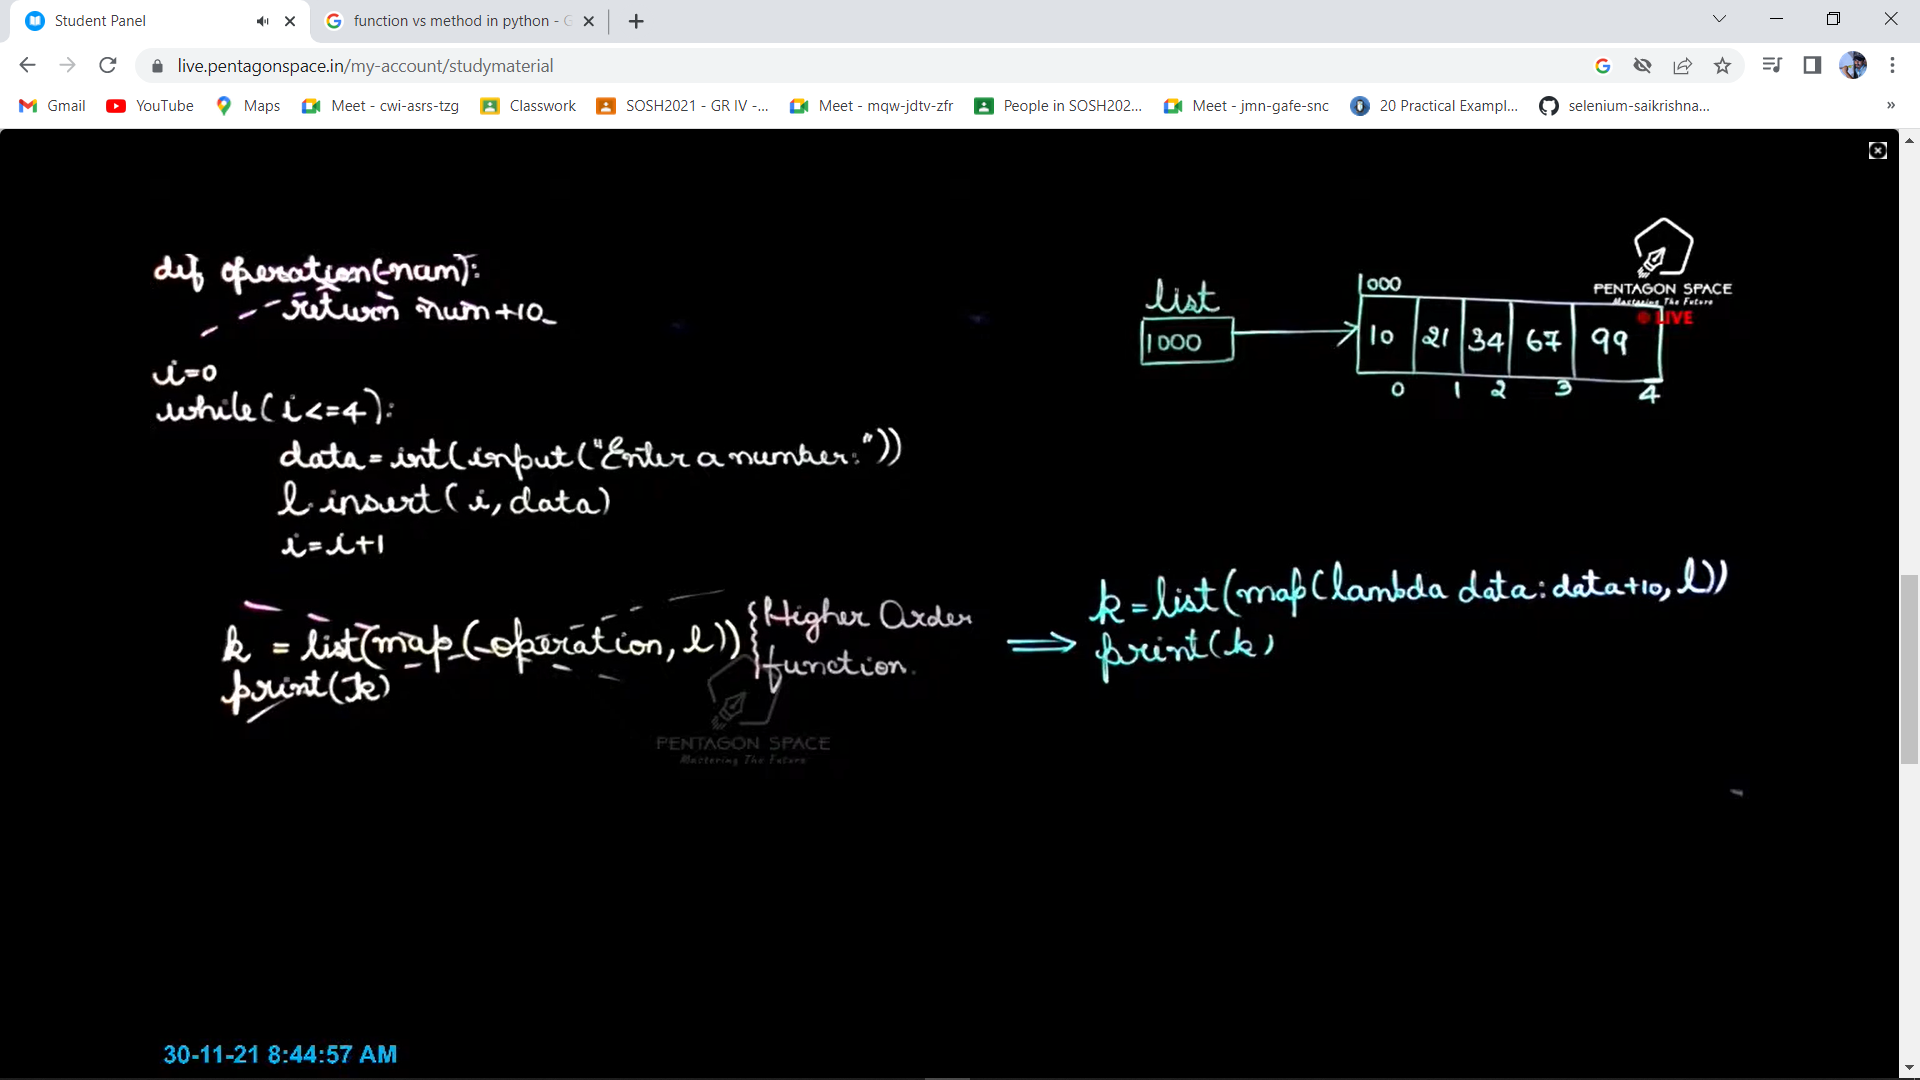 Student Panel
function vs method in python - G
live.pentagonspace.in/my-account/studymaterial
Gmail YouTube Maps Meet - cwi-asrs-tzg Classwork SOSH2021 - GR IV -... Meet - mqw-jdtv-zfr People in SOSH202... Meet - jmn-gafe-snc 20 Practical Exampl... selenium-saikrishna... »
def operation(num):
return num+10
i=0
while(i<=4):
data=int(input("Enter a number:"))
l.insert(i,data)
i=i+1
k = list(map(operation,l))
print(k)
Higher Order
function.
PENTAGON SPACE
Mastering The Future
LIVE
list
1000
1000
10 21 34 67 99
0 1 2 3 4
k=list(map(lambda data:data+10,l))
print(k)
PENTAGON SPACE
Mastering The Future
30-11-21 8:44:57 AM